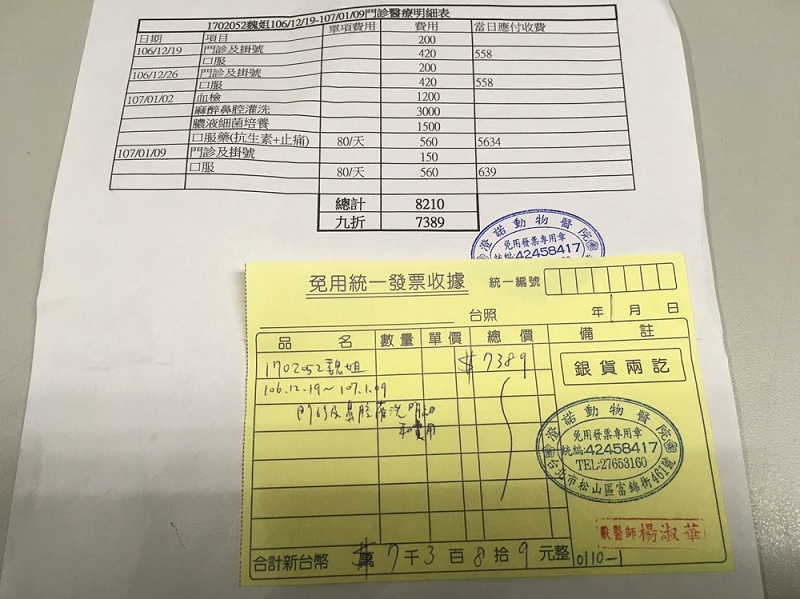 1702052魏姐106/12/19-107/01/09門診醫療明細表
日期 項目 單項費用 費用 當日應付收費
106/12/19 門診及掛號 200
口服 420 558
106/12/26 門診及掛號 200
口服 420 558
107/01/02 血檢 1200
麻醉鼻腔灌洗 3000
膿液細菌培養 1500
口服藥(抗生素+止痛) 80/天 560 5634
107/01/09 門診及掛號 150
口服 80/天 560 639
總計 8210
九折 7389
澄諾動物醫院
免用發票專用章
統編:42458417
免用統一發票收據 統一編號
台照 年 月 日
品名 數量 單價 總價 備註
1702052魏姐 $7389
銀貨兩訖
106.12.19~107.1.09
門診及鼻腔灌洗
費用
澄諾動物醫院
免用發票專用章
統編:42458417
TEL:27653160
台北市松山區富錦街461號
獸醫師 楊淑華
合計新台幣 $萬7千3百8拾9元整
0110-1